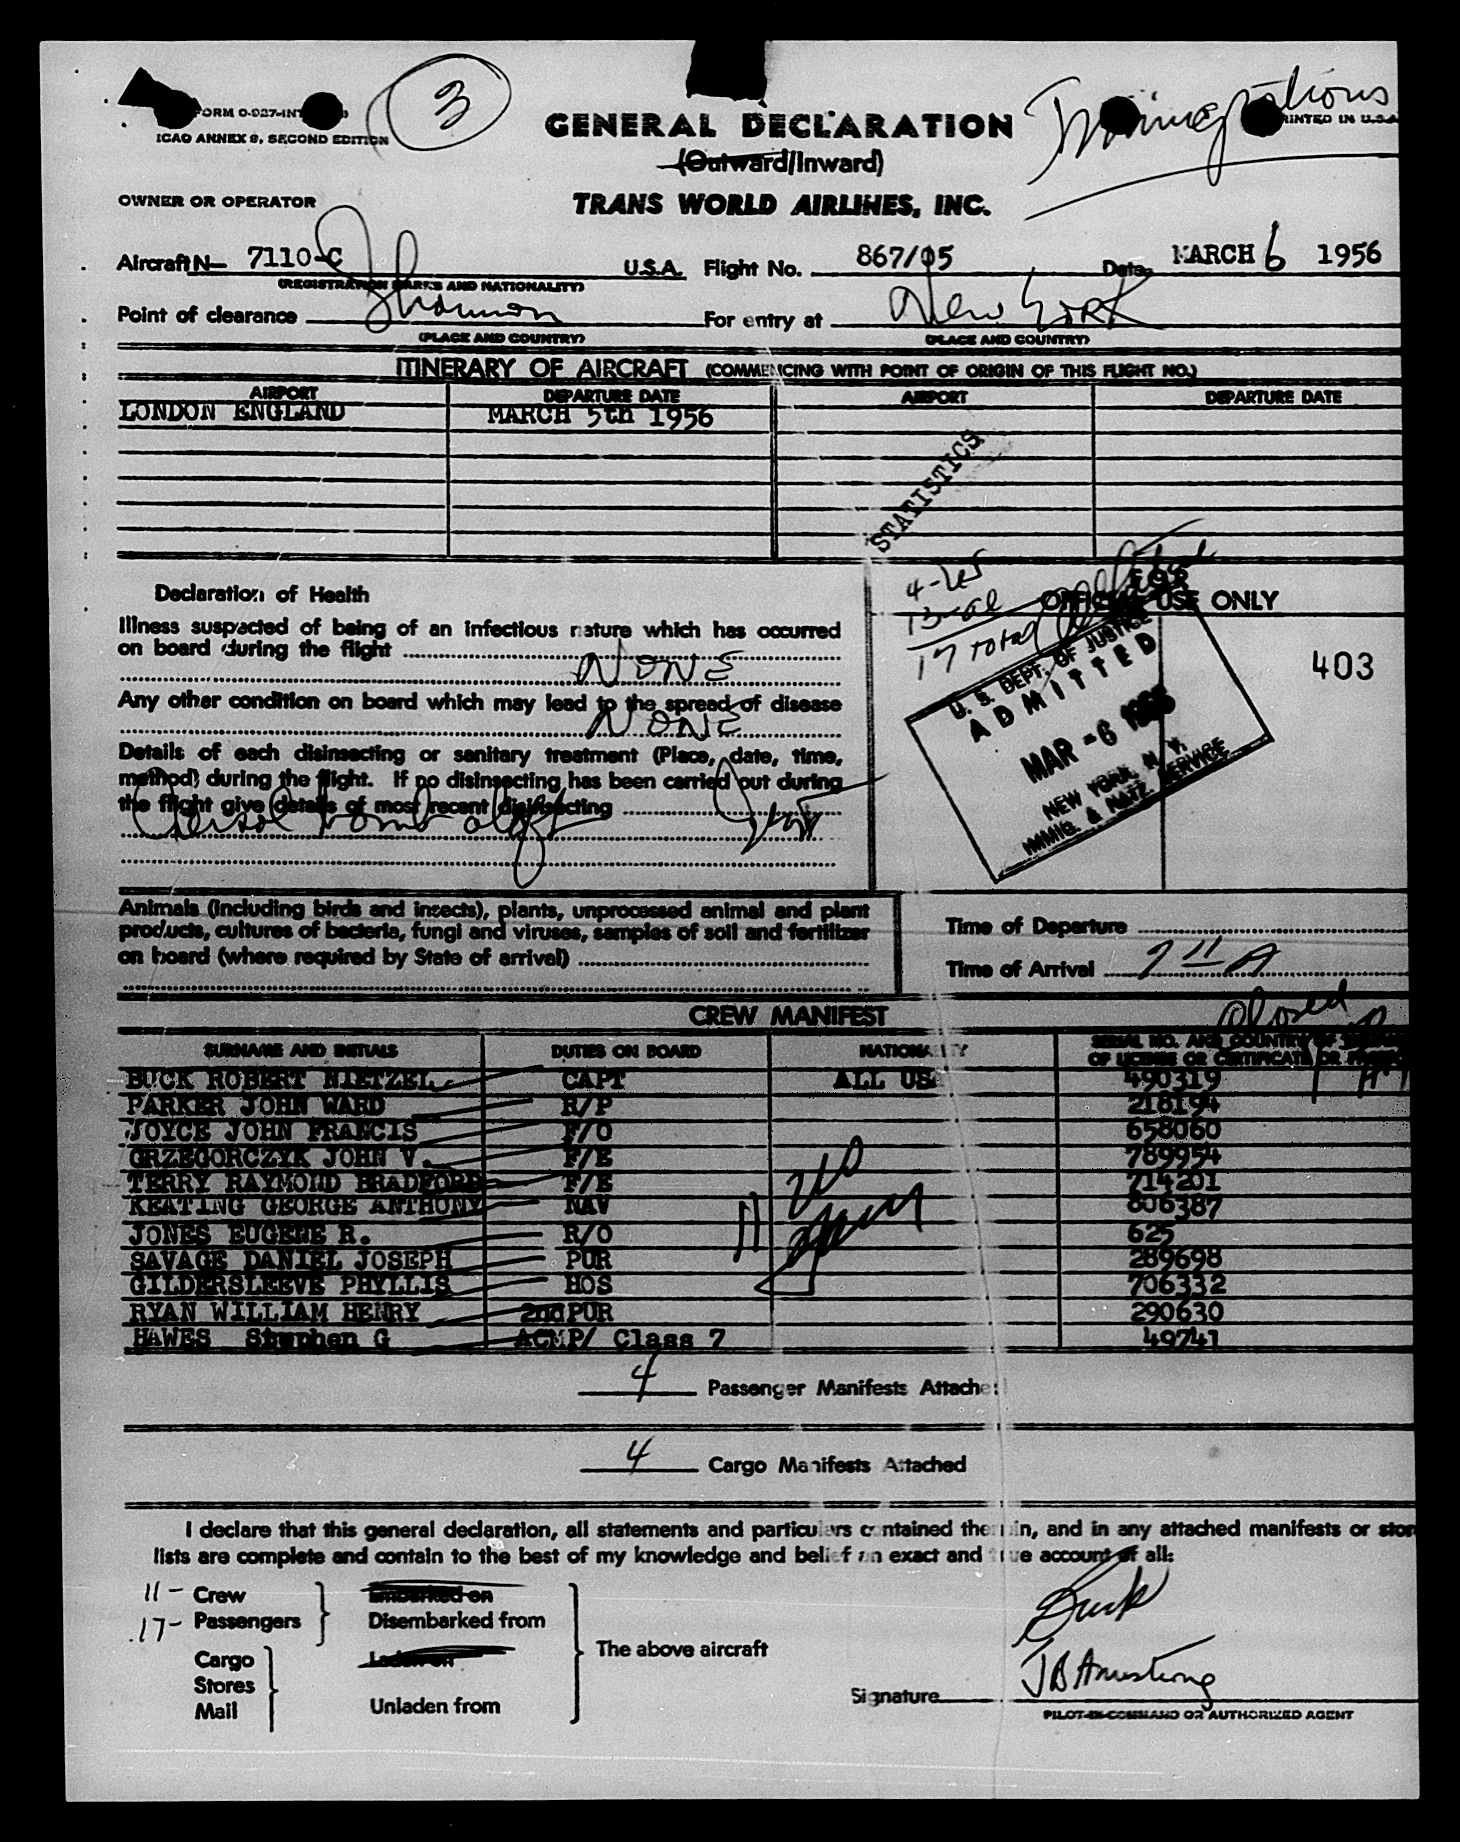 FORM O-927-INT
ICAO ANNEX 9, SECOND EDITION
3
GENERAL DECLARATION
(Outward/Inward)
TRANS WORLD AIRLINES, INC.
Immigrations
PRINTED IN U.S.A
OWNER OR OPERATOR
Aircraft N— 7110-C U.S.A. Flight No. 867/05 Date MARCH 6 1956
(REGISTRATION MARKS AND NATIONALITY)
Point of clearance Shannon For entry at New York
(PLACE AND COUNTRY) (PLACE AND COUNTRY)
ITINERARY OF AIRCRAFT (COMMENCING WITH POINT OF ORIGIN OF THIS FLIGHT NO.)
AIRPORT DEPARTURE DATE AIRPORT DEPARTURE DATE
LONDON ENGLAND MARCH 5th 1956
STATISTICS
Declaration of Health
FOR
OFFICIAL USE ONLY
4-
13-
17 total
403
Illness suspected of being of an infectious nature which has occurred
on board during the flight
NONE
Any other condition on board which may lead to the spread of disease
NONE
Details of each disinsecting or sanitary treatment (Place, date, time,
method) during the flight. If no disinsecting has been carried out during
the flight give details of most recent disinsecting
Aersol bomb
U. S. DEPT. OF JUSTICE
ADMITTED
MAR -6 1956
NEW YORK, N. Y.
IMMIG. & NATZ. SERVICE
Animals (including birds and insects), plants, unprocessed animal and plant
products, cultures of bacteria, fungi and viruses, samples of soil and fertilizer
on board (where required by State of arrival)
Time of Departure
Time of Arrival 7 11 A
Closed
CREW MANIFEST
SURNAME AND INITIALS DUTIES ON BOARD NATIONALITY SERIAL NO. AND COUNTRY OF
OF LICENSE OR CERTIFICATE OR
BUCK ROBERT NIETZEL CAPT ALL USA 490319
PARKER JOHN WARD R/P 218194
JOYCE JOHN FRANCIS F/O 658060
GRZEGORCZYK JOHN V. F/E 789954
TERRY RAYMOND BRADFORD F/E 714201
KEATING GEORGE ANTHONY NAV 606387
JONES EUGENE R. R/O 625
SAVAGE DANIEL JOSEPH PUR 289698
GILDERSLEEVE PHYLLIS HOS 706332
RYAN WILLIAM HENRY 2nd PUR 290630
HAWES Stephen G ACMP/ Class 7 49741
11
4 Passenger Manifests Attached
4 Cargo Manifests Attached
I declare that this general declaration, all statements and particulars contained therein, and in any attached manifests or stor
lists are complete and contain to the best of my knowledge and belief an exact and true account of all:
11 - Crew Embarked on
17 - Passengers Disembarked from
The above aircraft
Cargo Laden on
Stores
Mail Unladen from
Buck
JB Armstrong
Signature
PILOT-IN-COMMAND OR AUTHORIZED AGENT